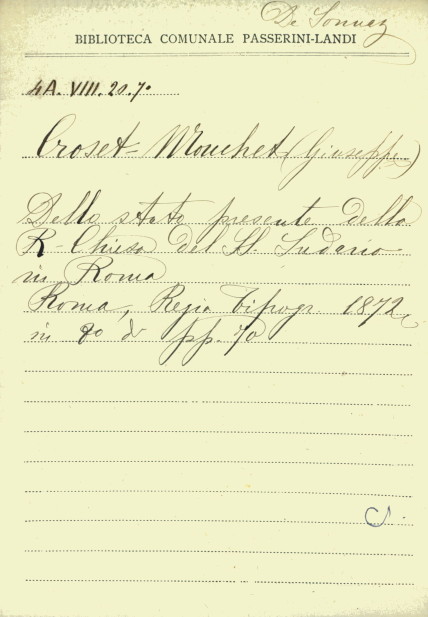 De Sonnaz
BIBLIOTECA COMUNALE PASSERINI-LANDI
4A. VIII. 20. 70
Croset-Mouchet (Giuseppe)
Dello stato presente della
R. Chiesa del SS. Sudario
in Roma
Roma, Regia Tipogr. 1872,
in 8º di pp. 70